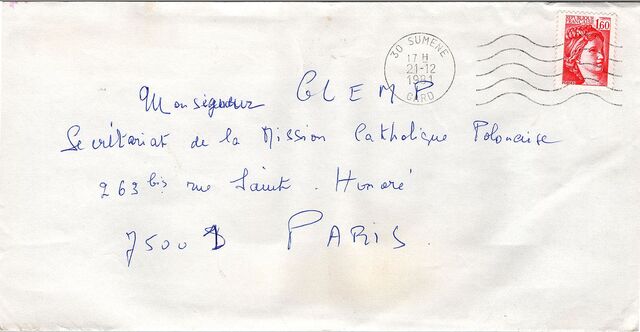 30 SUMENE
17 H
21-12
1981
GARD
REPUBLIQUE FRANÇAISE
1,60
Monseigneur GLEMP
Secrétariat de la Mission Catholique Polonaise
263 bis rue Saint. Honoré
75001 PARIS.